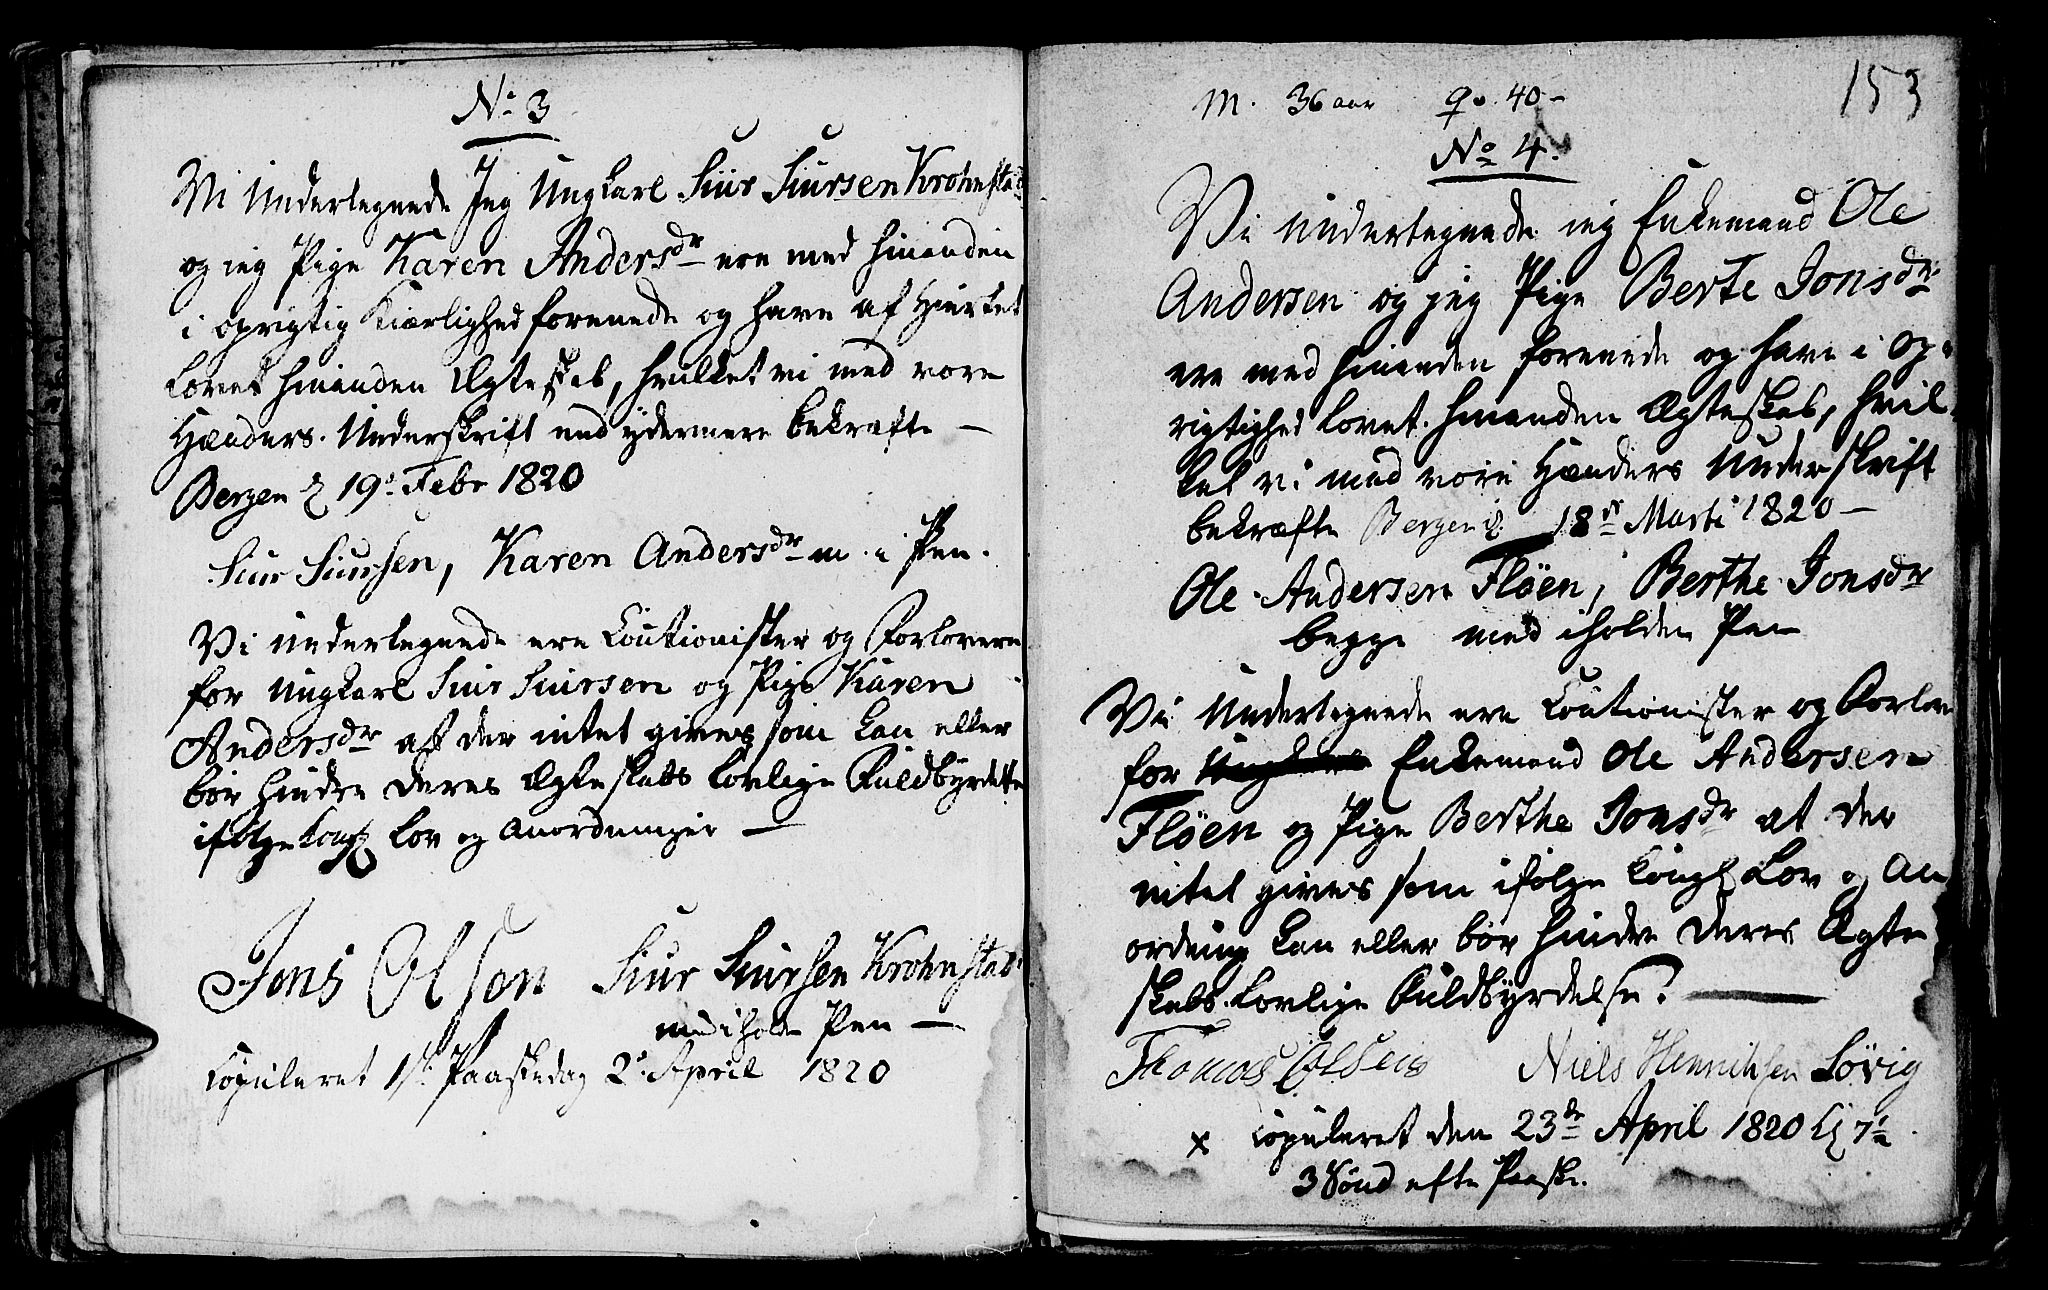 No 3
Vi Undertegnede Jeg Ungkarl Siur Siursen Krohnstad
og jeg Pige Karen Andersdr ere med hinanden
i oprigtig Kiærlighed forenede og have af Hiertet
lovet hinanden Ægteskab, hvilket vi med vore
Hænders Underskrift end ydermere bekræfte —
Bergen d 19. Febr 1820
Siur Siursen, Karen Andersdr m. i Pen.
Vi undertegnede ere Coutionister og Forlovere
for Ungkarl Siur Siursen og Pige Karen
Andersdr at der intet gives som kan eller
bør hindre deres Ægteskabs lovlige Fuldbyrdelse
ifølge Kongl Lov og Anordninger —
Jons Olson Siur Siursen Krohnstad
med iholden Pen —
copuleret 1ste Paaskedag 2. April 1820
153
M. 36 aar Q. 40 –
No 4.
Vi undertegnede jeg Enkemand Ole
Andersen og jeg Pige Berte Jonsdr
ere med hinanden forenede og have i Op-
rigtighed lovet hinanden Ægteskab, hvil-
ket vi med vore Hænders Underskrift
bekræfte Bergen d. 18de Marti 1820 —
Ole Andersen Fløen, Berthe Jonsdr
begge med iholden Pen
Vi Undertegnede ere Coutionister og Forlov
for Ungkarl Enkemand Ole Andersen
Fløen og Pige Berthe Jonsdr at der
intet gives som ifølge Kongl Lov og An
ordning kan eller bør hindre deres Ægte
skabs lovlige Fuldbyrdelse. —
Thomas Olsen Niels Henrichsen Lövig
x copuleret den 23de April 1820
3 Sönd efter Paaske.